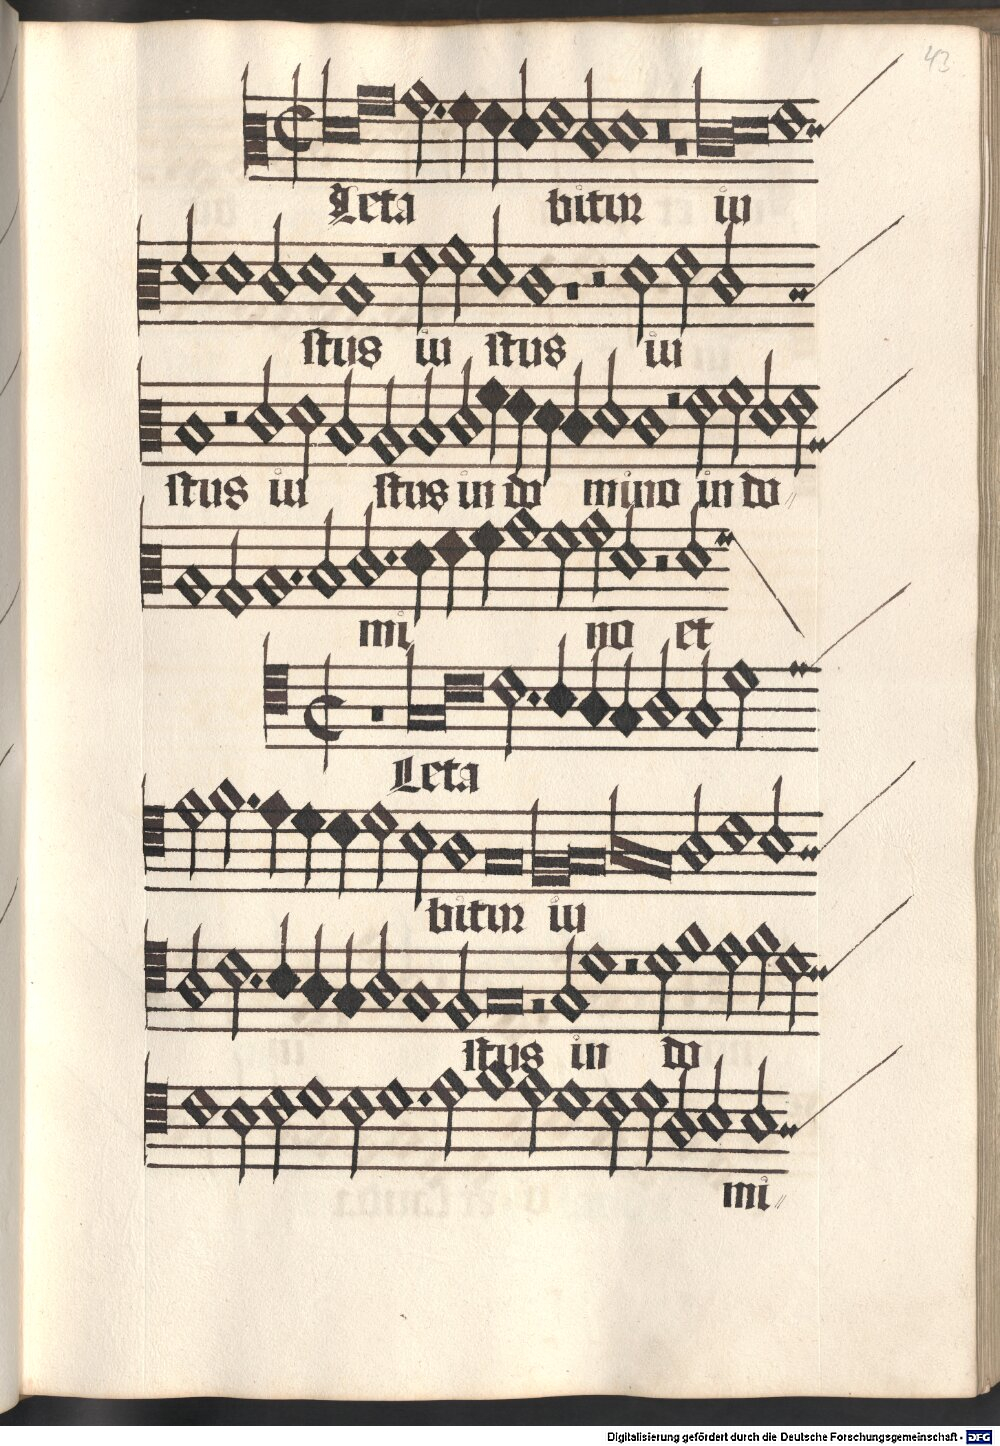 43
Leta bitur iu
stus iu stus iu
stus iu stus in do mino in do
mi no et
Leta
bitur iu
stus in do
mi
Digitalisierung gefördert durch die Deutsche Forschungsgemeinschaft - DFG